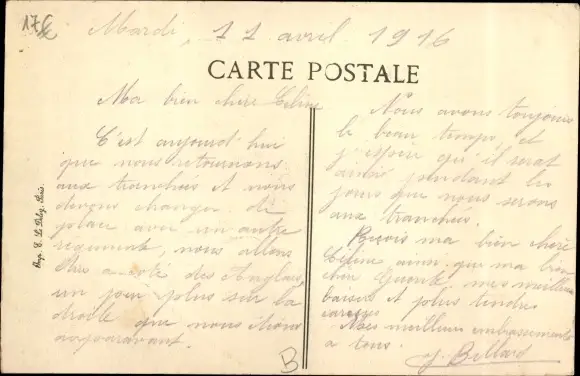 17c
Mardi, 11 avril 1916
CARTE POSTALE
Ma bien chère Céline
C'est aujourd'hui
que nous retournons
aux tranchées et nous
devons changer de
place avec un autre
régiment, nous allons
être a coté des Anglais,
un peu plus sur la
droite que nous étions
auparavant.
Nous avons toujours
le beau temps, et
j'espère qu'il serat
ainsi pendant les
jours que nous serons
aux tranchées.
Reçois ma bien chère
Céline ainsi que ma bien
chère mes meilleurs
baisers et plus tendres
caresses
Mes meilleurs embrassements
a tous.
J. Billard
B